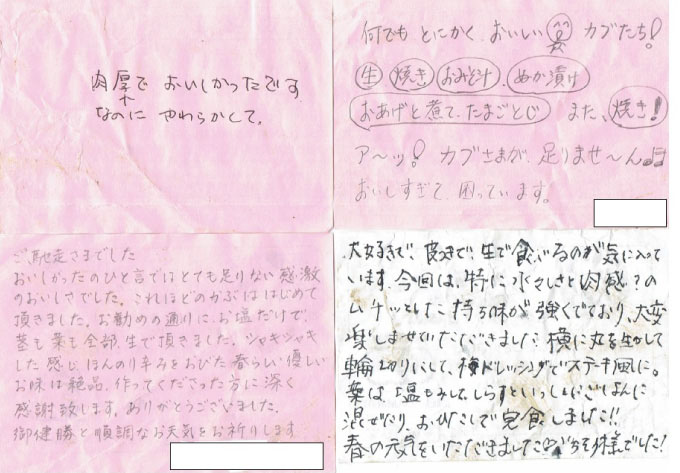 肉厚で おいしかったです
なのに やわらかくて。
何でも とにかく おいしい カブたち!
生 焼き おみそ汁 ぬか漬け
おあげと煮て、たまごとじ また、焼き!
ア〜ッ! カブさまが、足りませ〜ん♬
おいしすぎて 困っています。
ご馳走さまでした
おいしかったのひと言ではとても足りない感激
のおいしさでした。これほどのかぶははじめて
頂きました。お勧めの通りに、お塩だけで、
茎も葉も全部、生で頂きました。シャキシャキ
した感じ ほんのり辛みをおびた春らしい優しい
お味は絶品。作ってくださった方に深く
感謝致します。ありがとうございました。
御健勝と順調なお天気をお祈りします
大好きで、良つきで、生で食べるのが気に入って
います。今回は、特に水々しさと肉感?の
ムチッとした持ち味が強くでており、大変
楽しませていただきました。横に丸を生かして
輪切りにして、梅ドレッシングでステーキ風に。
葉は塩もみして、しらすといっしょにごはんに
混ぜたり、おひたしで完食しました!!
春の元気をいただきました ごちそう様でした!